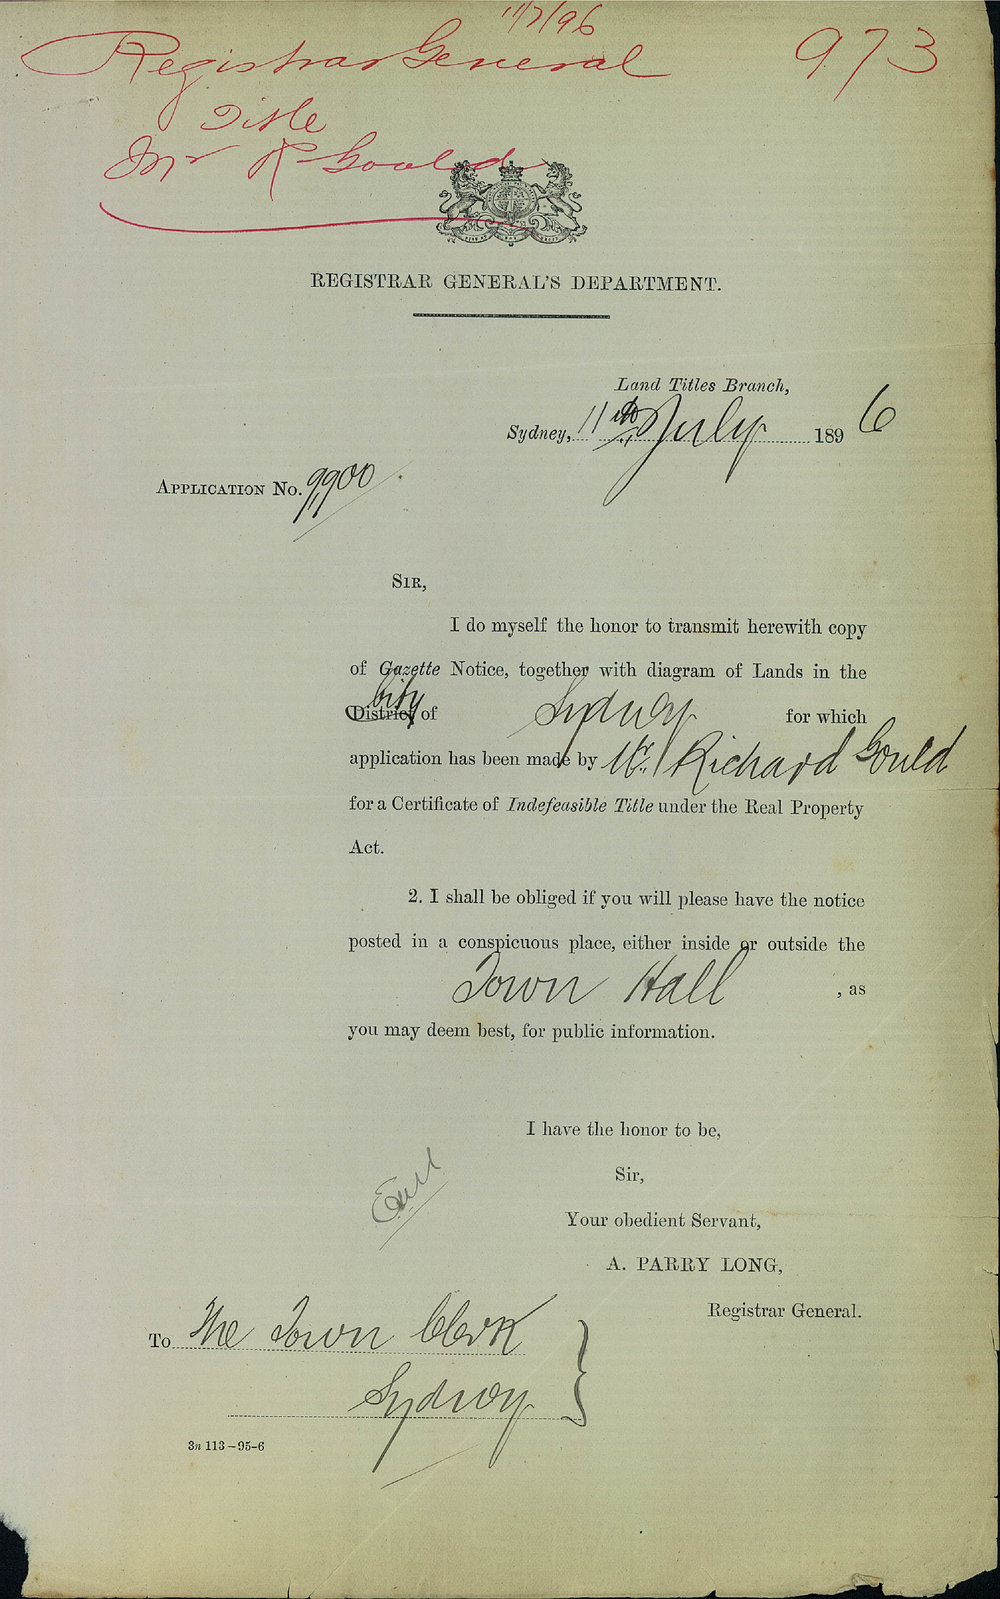 11/7/96
Registrar General
973
Title
Mr R Gould
REGISTRAR GENERAL'S DEPARTMENT.
Land Titles Branch,
Sydney, 11th July 1896
APPLICATION No. 9900
SIR,
I do myself the honor to transmit herewith copy
of Gazette Notice, together with diagram of Lands in the
City
District of Sydney for which
application has been made by Mr. Richard Gould
for a Certificate of Indefeasible Title under the Real Property
Act.
2. I shall be obliged if you will please have the notice
posted in a conspicuous place, either inside or outside the
Town Hall , as
you may deem best, for public information.
I have the honor to be,
Sir,
Your obedient Servant,
A. PARRY LONG,
Registrar General.
To The Town Clerk
Sydney
3n 113-95-6